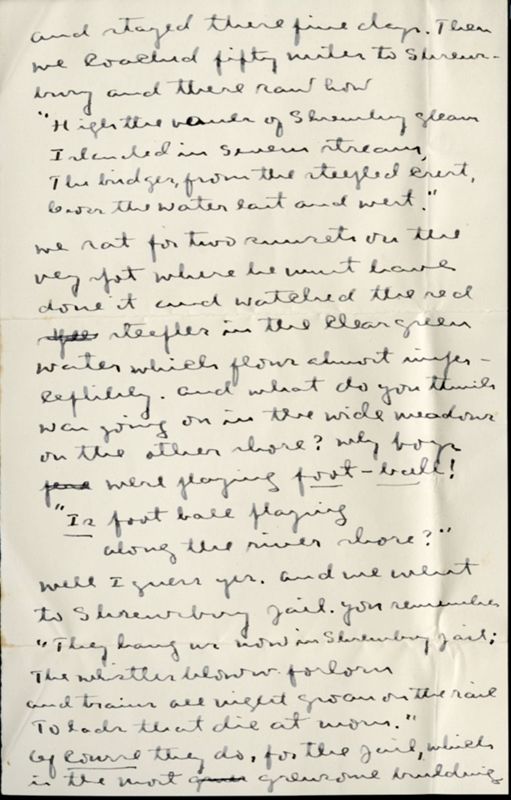 and stayed there five days. Then
we coached fifty miles to Shrews-
bury and there saw how
"High the vanes of Shrewsbury gleam
Islanded in Severn stream,
The bridges, from the steepled crest,
Cross the water east and west."
we sat for two sunsets on the
very spot where he must have
done it and watched the red
steeples in the clear green
water which flows almost imper-
ceptibly. and what do you think
was going on in the wide meadows
on the other shore? why boys
were playing foot-ball!
"Is foot ball playing
along the river shore?"
well I guess yes. and we went
to Shrewsbury jail. you remember
"They hang us now in Shrewsbury jail;
The whistles blow forlorn
and trains all night groan on the rail
To lads that die at morn."
Of course they do, for the jail, which
is the most gruesome building